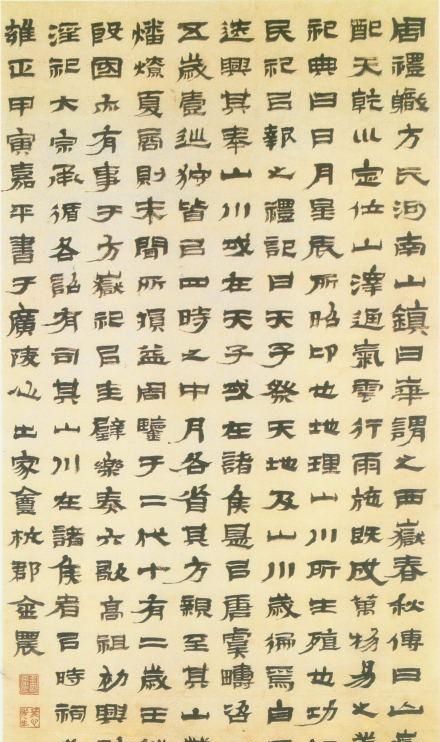 周禮職方氏河南山鎮曰華謂之西嶽春秋傳曰山嶽
配天乾川定位山澤通氣雲行雨施既成萬物易之義
祀典曰日月星辰所昭卬也地理山川所生殖也功加
民祀㠯報之禮記曰天子祭天地及山川歲徧焉自三
迭興其奉山川或在天子或在諸侯是㠯唐虞疇咨
五歲壹巡狩皆㠯四時之中月各省其方親至其山柴
燔燎夏商則未聞所損益周鑒于二代十有二歲王
殷國亦有事于方嶽祀㠯圭璧樂奏六歌高祖初興
淫祀大宗承循各詔有司其山川在諸侯者㠯時祠
雍正甲寅嘉平書于廣陵心出家盦杭郡金農